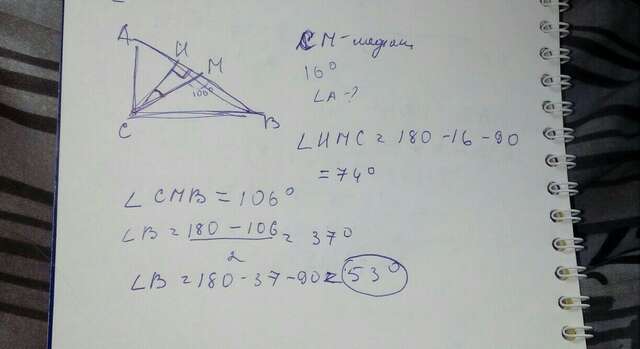 A
H
M
106°
C
B
CM - медиан
16°
∠A - ?
∠HMC = 180 - 16 - 90
= 74°
∠CMB = 106°
∠B = 180 - 106 / 2 = 37°
∠B = 180 - 37 - 90 = 53°